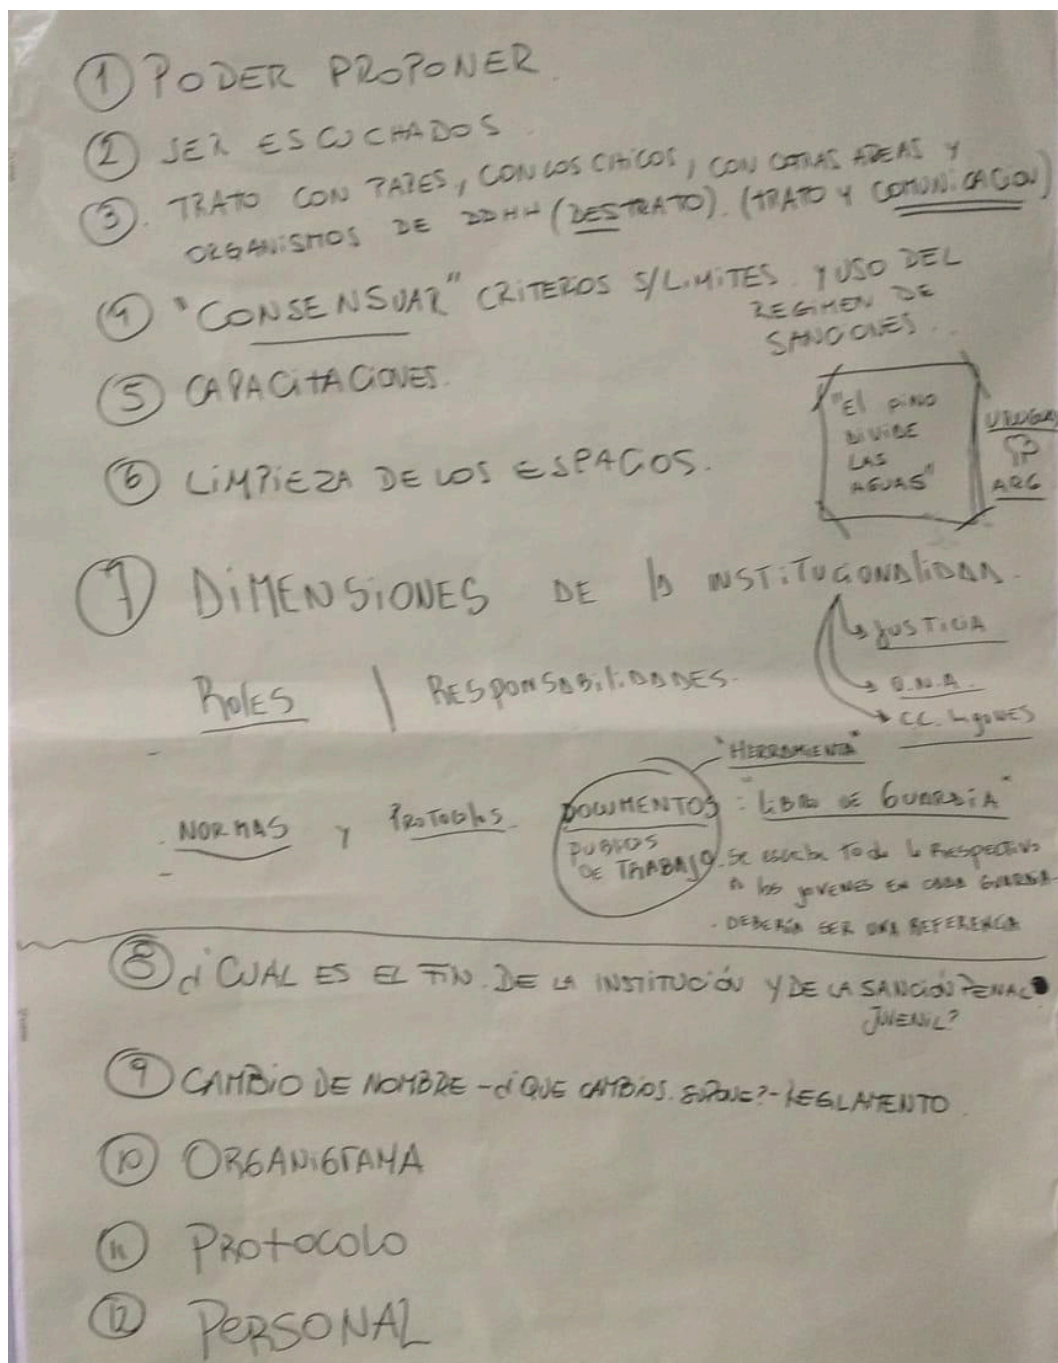 ① PODER PROPONER.
② SER ESCUCHADOS.
③. TRATO CON PARES, CON LOS CHICOS, CON OTRAS AREAS Y
ORGANISMOS DE DDHH (DESTRATO). (TRATO Y COMUNICACION)
④ "CONSENSUAR" CRITERIOS S/LIMITES. Y USO DEL
REGIMEN DE
SANCIONES.
⑤ CAPACITACIONES.
"El PINO
DIVIDE
LAS
AGUAS"
URUGUAY
ARG
⑥ LIMPIEZA DE LOS ESPACIOS.
⑦ DIMENSIONES DE la INSTITUCIONALIDAD.
JUSTICIA
Roles | RESPONSABILIDADES.
C.C.
"HERRAMIENTA"
. NORMAS Y PROTOCOLOS. DOCUMENTOS : "LIBRO DE GUARDIA"
PUBLICOS
DE TRABAJO
. SE escribe todo lo RESPECTIVO
A los JOVENES EN CADA GUARDIA.
. DEBERÍA SER UNA REFERENCIA
⑧ ¿CUAL ES EL FIN. DE LA INSTITUCIÓN Y DE LA SANCIÓN PENAL
JUVENIL?
⑨ CAMBIO DE NOMBRE - ¿QUE CAMBIOS. SUPONE? - REGLAMENTO.
⑩ ORGANIGRAMA
⑪ PROTOCOLO
⑫ PERSONAL